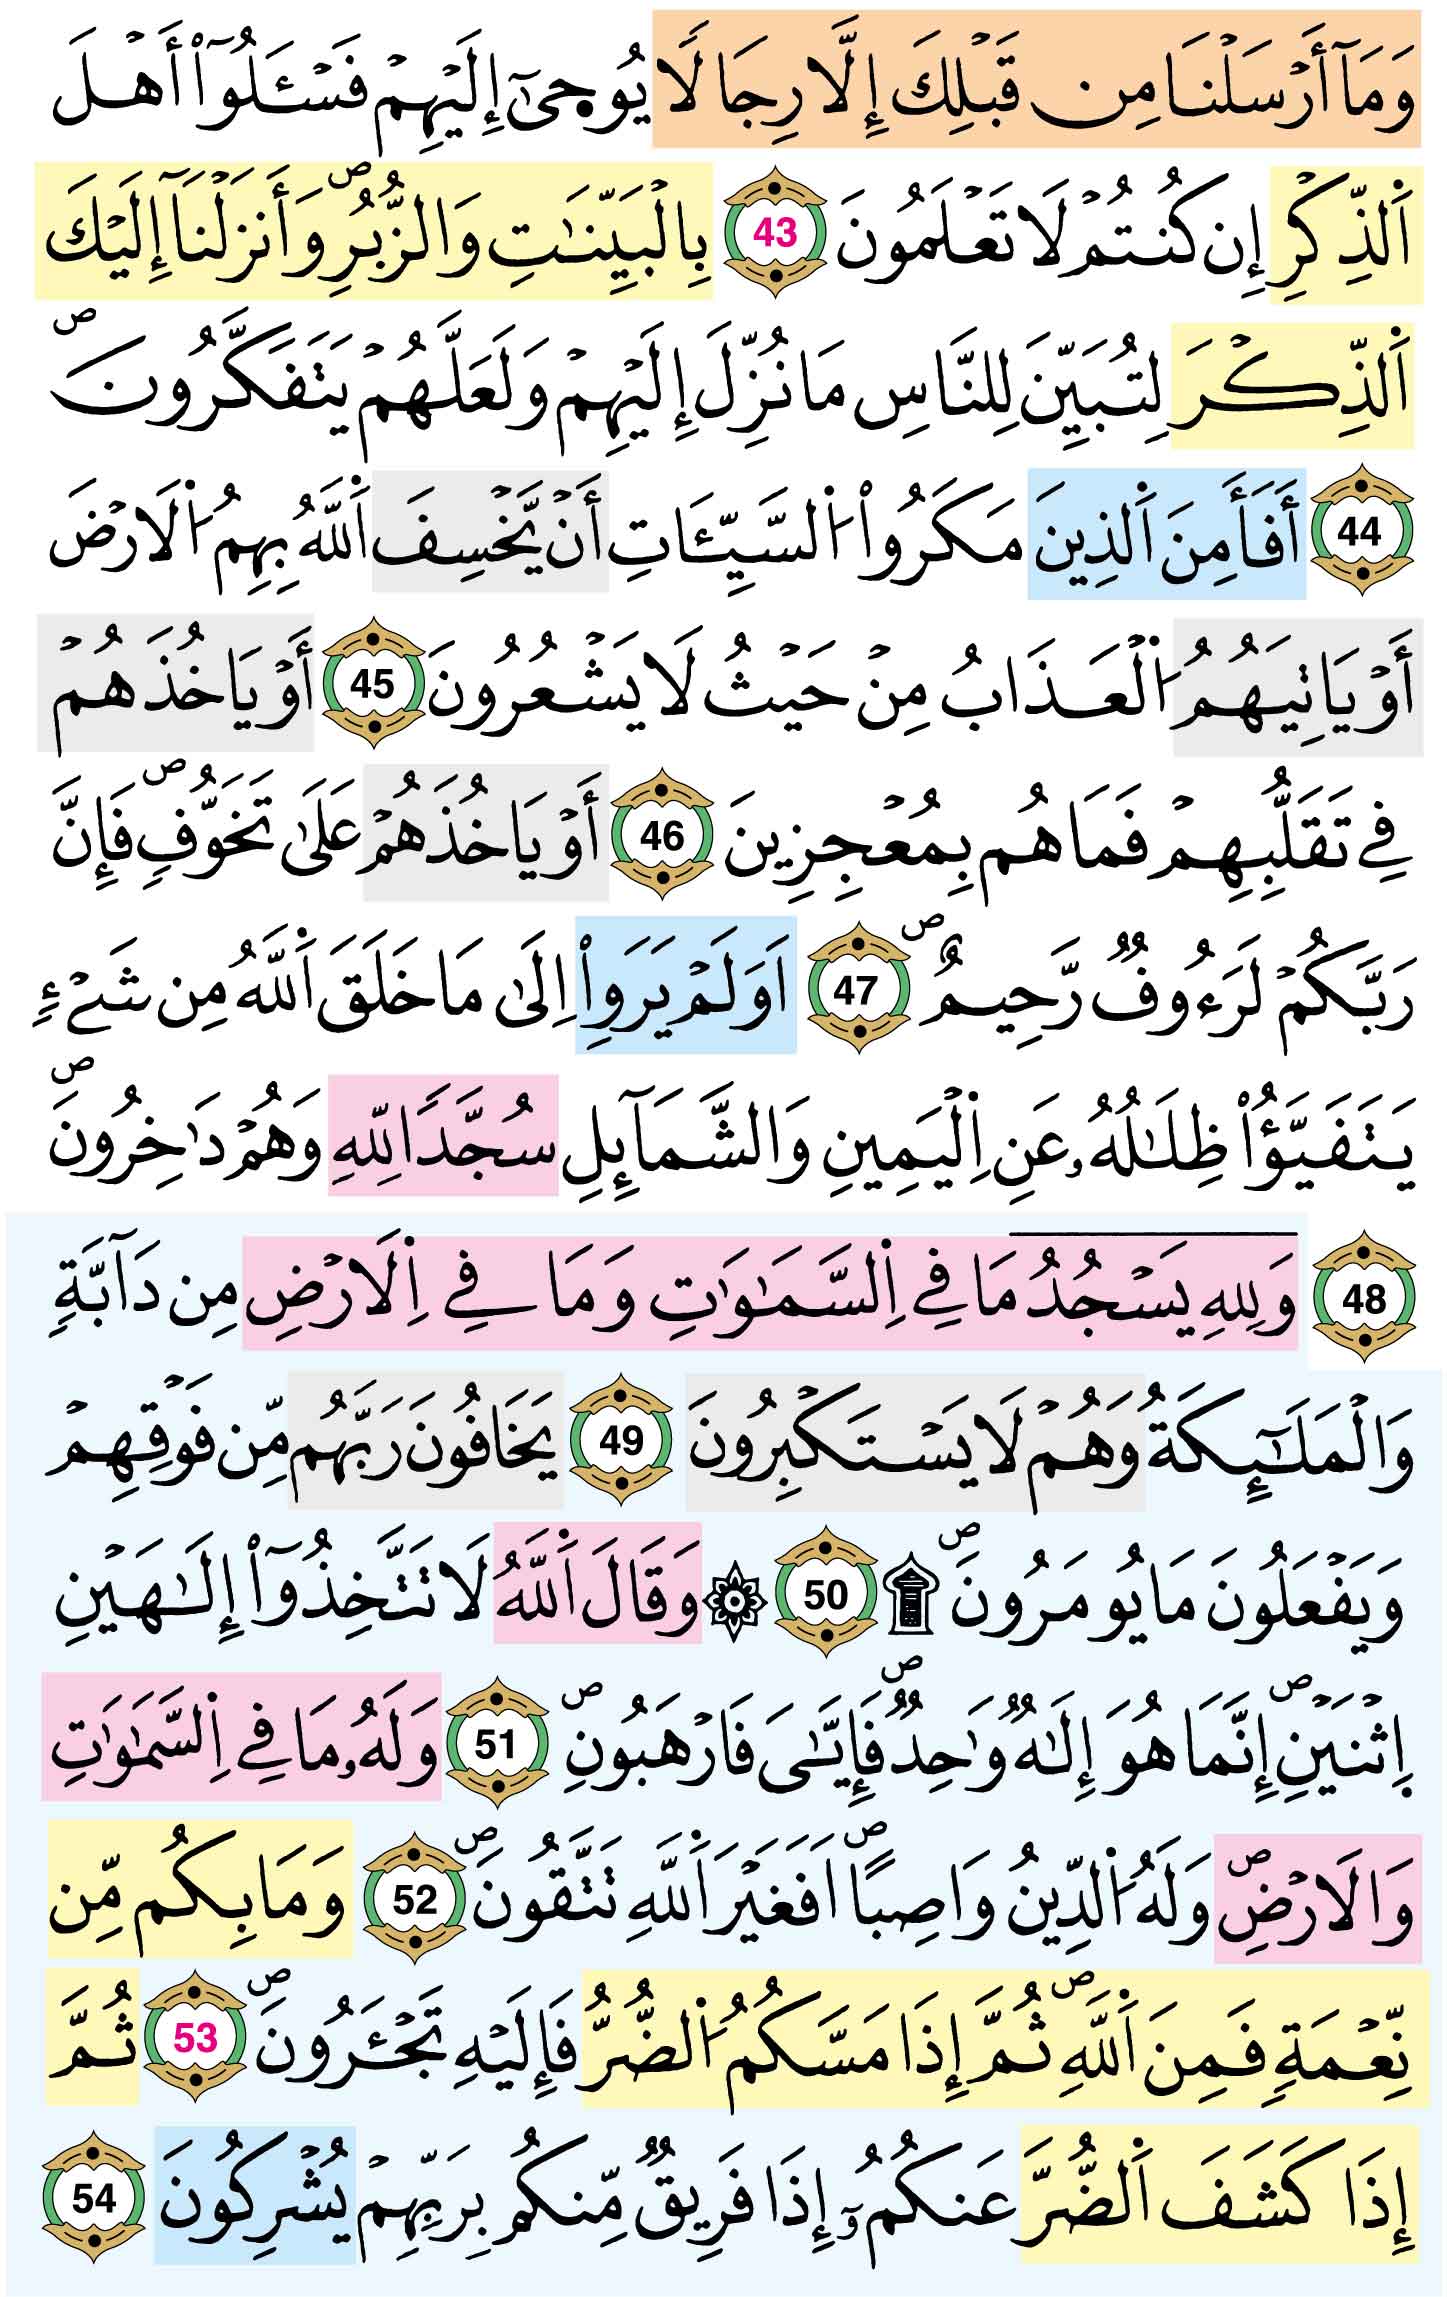 وَمَآ أَرْسَلْنَا مِن قَبْلِكَ إِلَّا رِجَالًا يُوحَىٰٓ إِلَيْهِمْ فَسْـَٔلُوٓاْ أَهْلَ
اَ۬لذِّكْرِ إِن كُنتُمْ لَا تَعْلَمُونَ 43 بِالْبَيِّنَٰتِ وَالزُّبُرِۖ وَأَنزَلْنَآ إِلَيْكَ
اَ۬لذِّكْرَ لِتُبَيِّنَ لِلنَّاسِ مَا نُزِّلَ إِلَيْهِمْ وَلَعَلَّهُمْ يَتَفَكَّرُونَۖ
44 أَفَأَمِنَ اَ۬لذِينَ مَكَرُواْ اُ۬لسَّيِّـَٔاتِ أَنْ يَّخْسِفَ اَ۬للَّهُ بِهِمُ اُ۬لَارْضَ
أَوْ يَاتِيَهُمُ اُ۬لْعَذَابُ مِنْ حَيْثُ لَا يَشْعُرُونَ 45 أَوْ يَاخُذَهُمْ
فِے تَقَلُّبِهِمْ فَمَا هُم بِمُعْجِزِينَ 46 أَوْ يَاخُذَهُمْ عَلَىٰ تَخَوُّفٖۖ فَإِنَّ
رَبَّكُمْ لَرَءُوفٞ رَّحِيمٌۖ 47 اَوَلَمْ يَرَوِاْ اِلَىٰ مَا خَلَقَ اَ۬للَّهُ مِن شَےْءٖ
يَتَفَيَّؤُاْ ظِلَٰلُهُۥ عَنِ اِ۬لْيَمِينِ وَالشَّمَآئِلِ سُجَّدًا لِلهِ وَهُمْ دَٰخِرُونَۖ
48 وَلِلهِ يَسْجُدُ مَا فِے اِ۬لسَّمَٰوَٰتِ وَمَا فِے اِ۬لَارْضِ مِن دَآبَّةٖ
وَالْمَلَٰٓئِكَةُ وَهُمْ لَا يَسْتَكْبِرُونَ 49 يَخَافُونَ رَبَّهُم مِّن فَوْقِهِمْ
وَيَفْعَلُونَ مَا يُومَرُونَۖ ۩ 50 ۞ وَقَالَ اَ۬للَّهُ لَا تَتَّخِذُوٓاْ إِلَٰهَيْنِ
اِ۪ثْنَيْنِۖ إِنَّمَا هُوَ إِلَٰهٞ وَٰحِدٞۖ فَإِيَّٰىَ فَارْهَبُونِۖ 51 وَلَهُۥ مَا فِے اِ۬لسَّمَٰوَٰتِ
وَالَارْضِۖ وَلَهُ اُ۬لدِّينُ وَاصِباًۖ اَفَغَيْرَ اَ۬للَّهِ تَتَّقُونَۖ 52 وَمَا بِكُم مِّن
نِّعْمَةٖ فَمِنَ اَ۬للَّهِۖ ثُمَّ إِذَا مَسَّكُمُ اُ۬لضُّرُّ فَإِلَيْهِ تَجْـَٔرُونَۖ 53 ثُمَّ
إِذَا كَشَفَ اَ۬لضُّرَّ عَنكُمُۥٓ إِذَا فَرِيقٞ مِّنكُم بِرَبِّهِمْ يُشْرِكُونَ 54